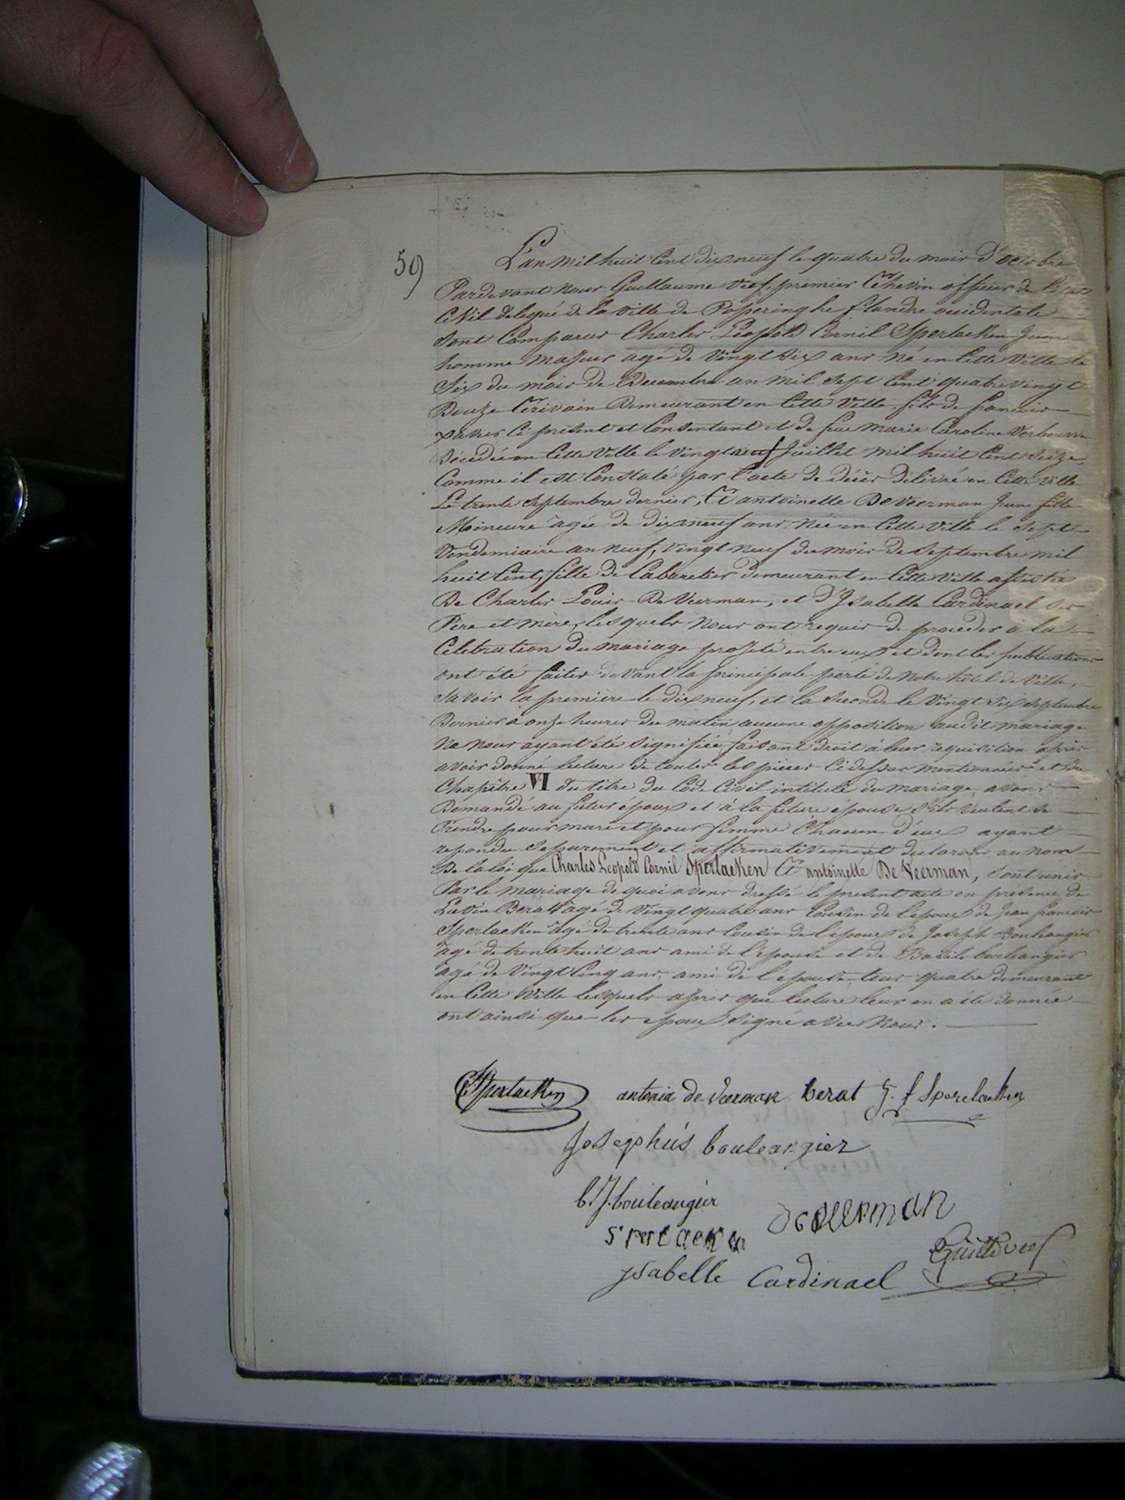 59
L'an mil huit cent dix neuf le quatre du mois d'octobre
Pardevant nous Guillaume Veef, premier Echevin officier de l'état
Civil delegué de la ville de Poperinghe flandre occidentale
sont comparus Charles Leopold Cornil Sperlaeken jeune
homme majeur agé de vingt six ans né en cette ville le
Six du mois de Decembre an mil sept cent quatrevingt
Douze Ecrivain Demeurant en cette ville fils de francois
ce present et consentant et de feue Marie Caroline
décédée en cette ville le vingt neuf Juillet mil huit cent seize
Comme il est constaté par l'acte de décès delivré en cette ville
Le trente septembre dernier, Et antoinette DeVeerman jeune fille
Mineure agée de dix neuf ans née en cette ville le sept
Vendemiaire an neuf, vingt neuf du mois de Septembre mil
huit cent, fille de Cabaretier demeurant en cette ville assistée
De Charles Louis De Veerman, et d'Isabelle Cardinael ses
Père et mere, lesquels nous ont requis de proceder a la
Celebration du mariage projeté entre eux et dont les publications
ont été faites devant la principale porte de notre hôtel de ville,
savoir la première le dix neuf, et la seconde le vingt six septembre
Dernier à onze heures du matin aucune opposition audit mariage
Ne nous ayant été signifiée, faisant droit à leur requisition après
avoir donné lecture de toutes les pièces ci dessus mentionnées et du
Chapitre VI du titre du Code Civil intitulé du mariage, avons
Demandé au futur epoux et à la future épouse s'ils veulent se
Prendre pour mari et pour femme chacun d'eux ayant
repondu séparement et affirmativement declarons au nom
De la loi que Charles Leopold Cornil Sperlaeken Et antoinette De Veerman, sont unis
Par le mariage de quoi avons dressé le present acte en presence de
Lievin Berat agé de vingt quatre ans Cousin de l'epoux de Jean francois
Sperlaeken agé de trente ans cousin de l'époux de Joseph Boulangier
agé de trente huit ans ami de l'épouse et de Basile boulangier
agé de vingt cinq ans, ami de l'epouse, tous quatre demeurant
en cette ville lesquels après que lecture leur en a été donnée
ont ainsi que les epoux signé avec nous.
CSperlaeken antonia de veerman berat J. f Sperelaeken
Josephus bouleangier
b.J. bouleangier
deveerman
sperlaeken
Guill Veef
ysabelle Cardinael